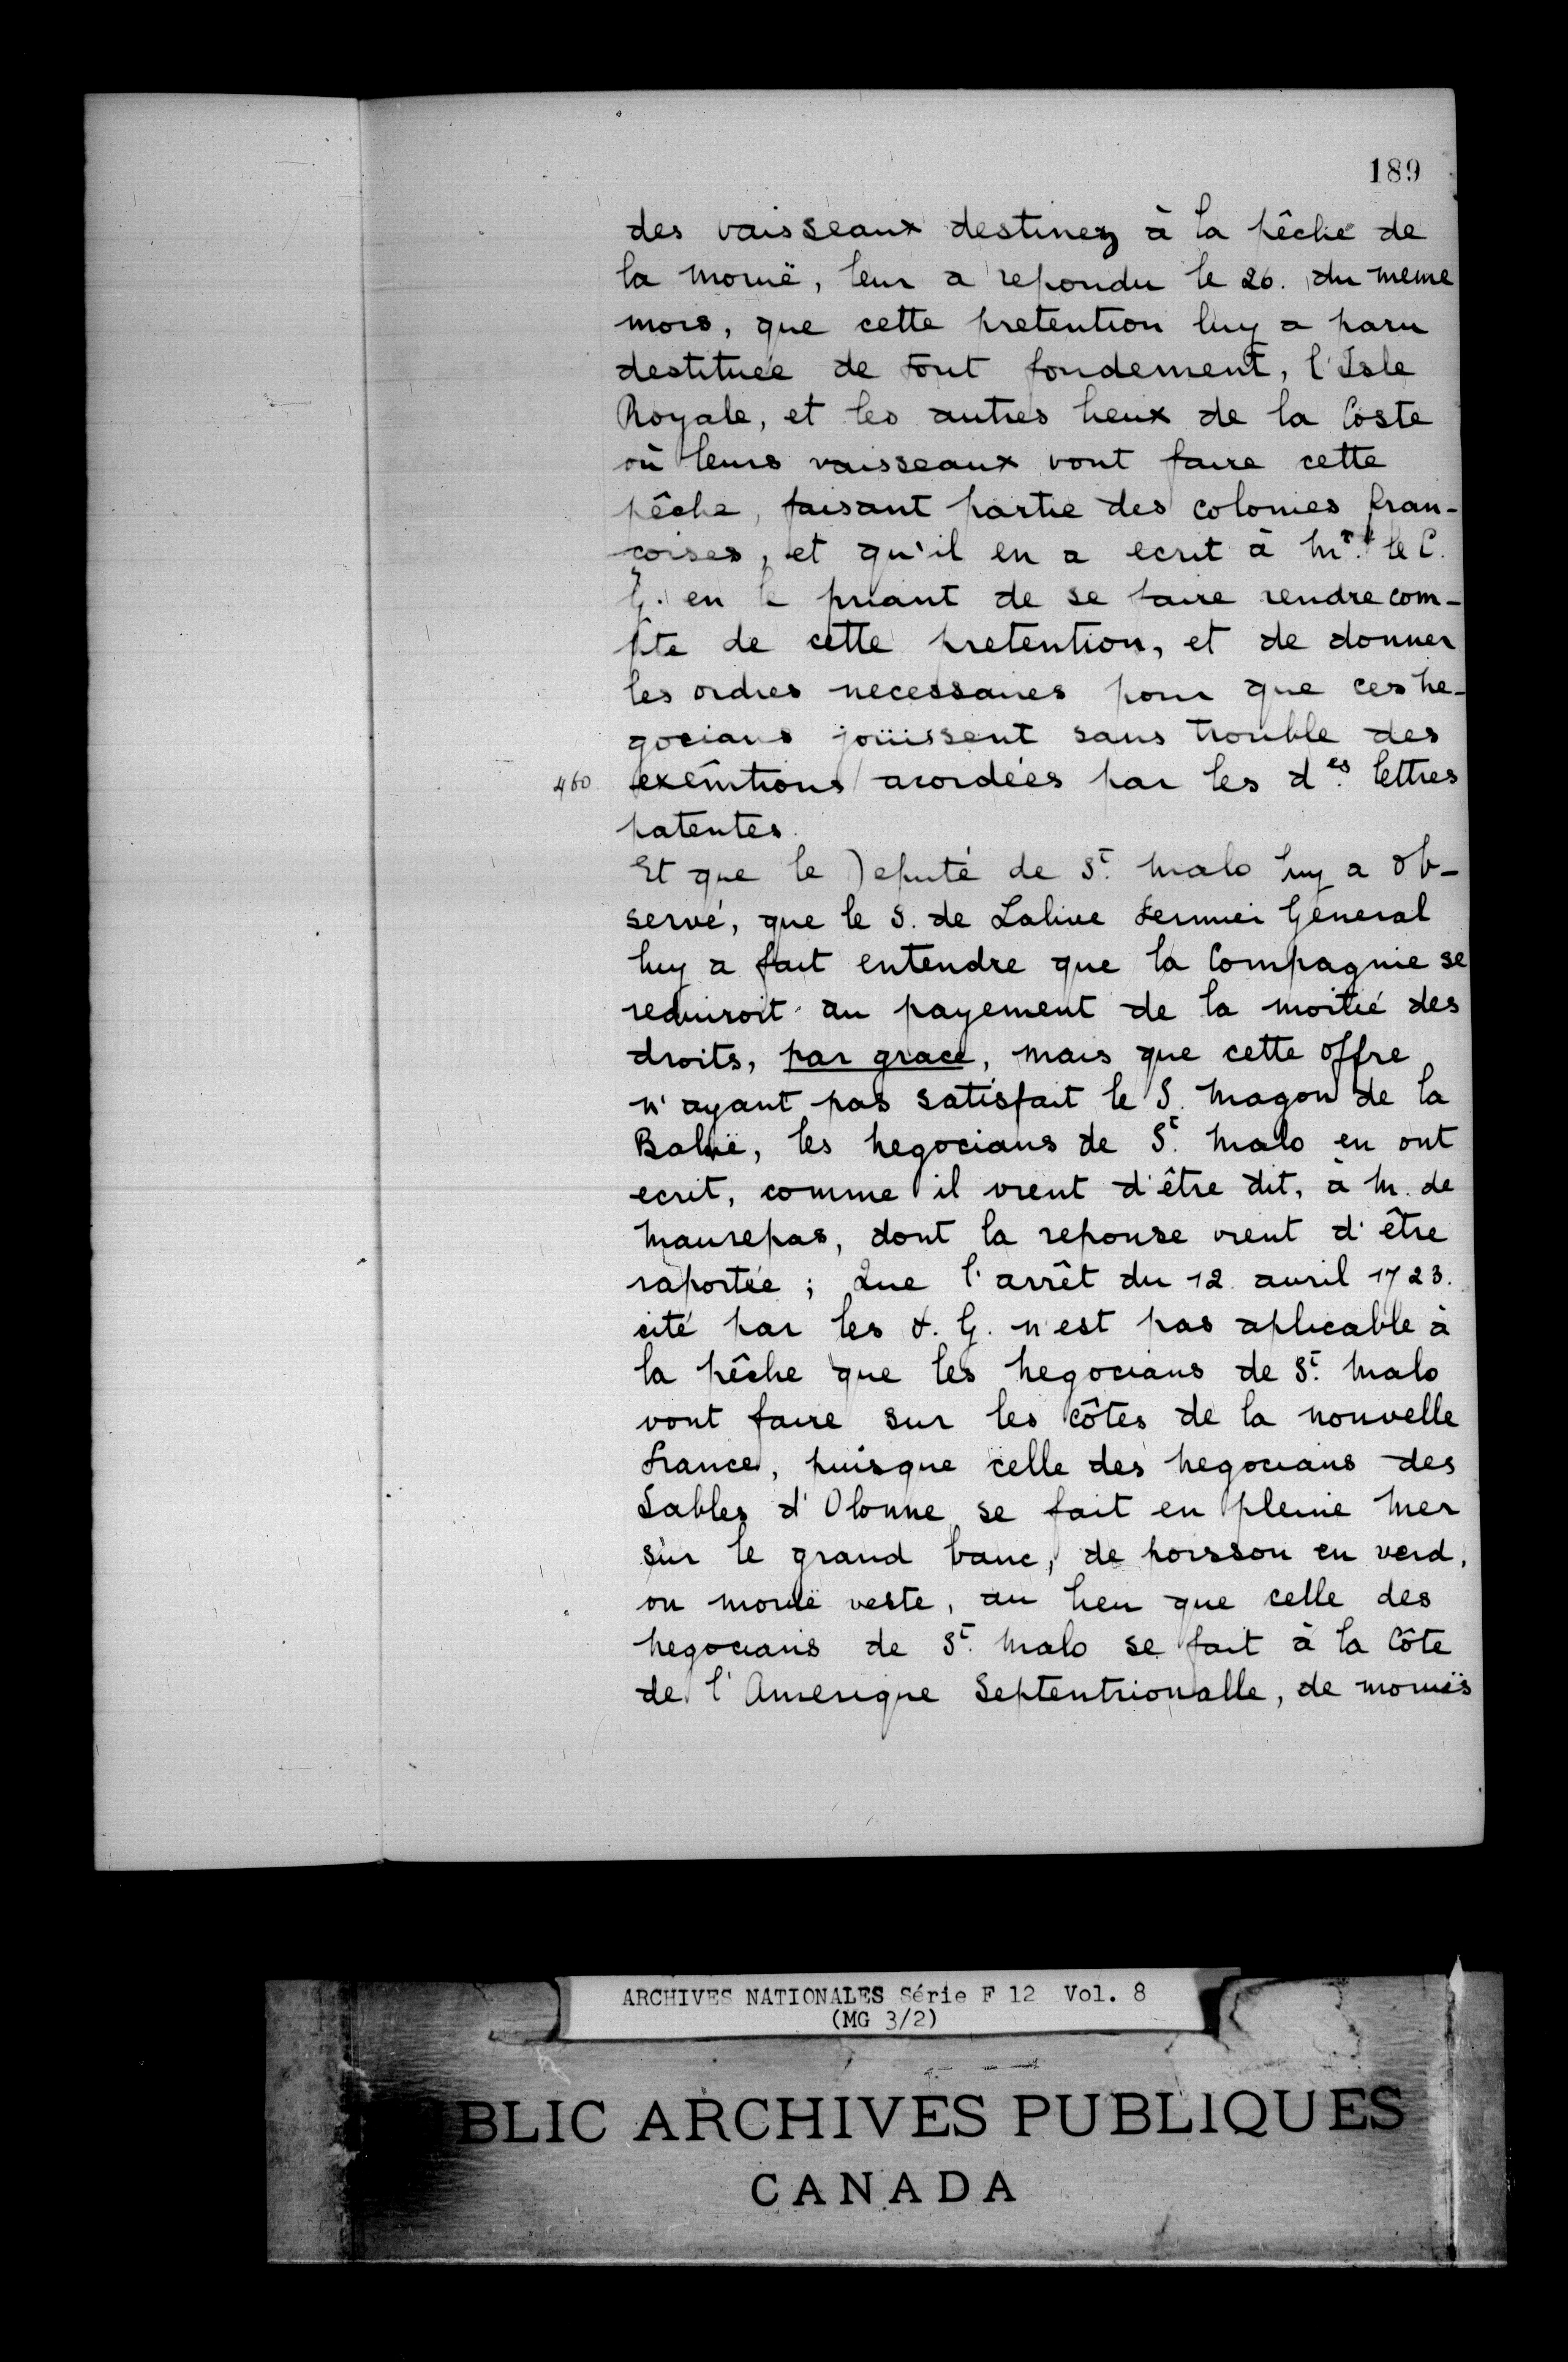 189
des vaisseaux destinez à la pêche de
la moruë, leur a repondu le 26. du meme
mois, que cette pretention luy a paru
destituée de tout fondement, l'Isle
Royale, et les autres lieux de la Coste
où leurs vaisseaux vont faire cette
pêche, faisant partie des colonies fran-
çoises, et qu'il en a ecrit à Mr. le C.
G. en le priant de se faire rendre com-
pte de cette pretention, et de donner
les ordres necessaires pour que ces ne-
gocians joüissent sans trouble des
460 exemtions acordées par les d.es lettres
patentes.
Et que le Deputé de St. Malo luy a ob-
servé, que le S. de Lalive Fermier General
luy a fait entendre que la Compagnie se
reduiroit au payement de la moitié des
droits, par grace, mais que cette offre
n'ayant pas satisfait le S. Magon de la
Baluë, les negocians de St. Malo en ont
ecrit, comme il vient d'être dit, à M. de
Maurepas, dont la reponse vient d'être
raportée ; Que l'arrêt du 12 avril 1723.
cité par les f. G. n'est pas aplicable à
la pêche que les negocians de St. Malo
vont faire sur les côtes de la nouvelle
france, puisque celle des negocians des
Sables d'Olonne se fait en pleine mer
sur le grand banc, de poisson en verd,
ou moruë verte, au lieu que celle des
negocians de St. Malo se fait à la Côte
de l'Amerique Septentrionalle, de moruës
ARCHIVES NATIONALES Série F 12 Vol. 8
(MG 3/2)
BLIC ARCHIVES PUBLIQUES
CANADA